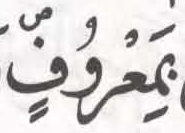 بِمَعْرُوفٍۢ ۖ